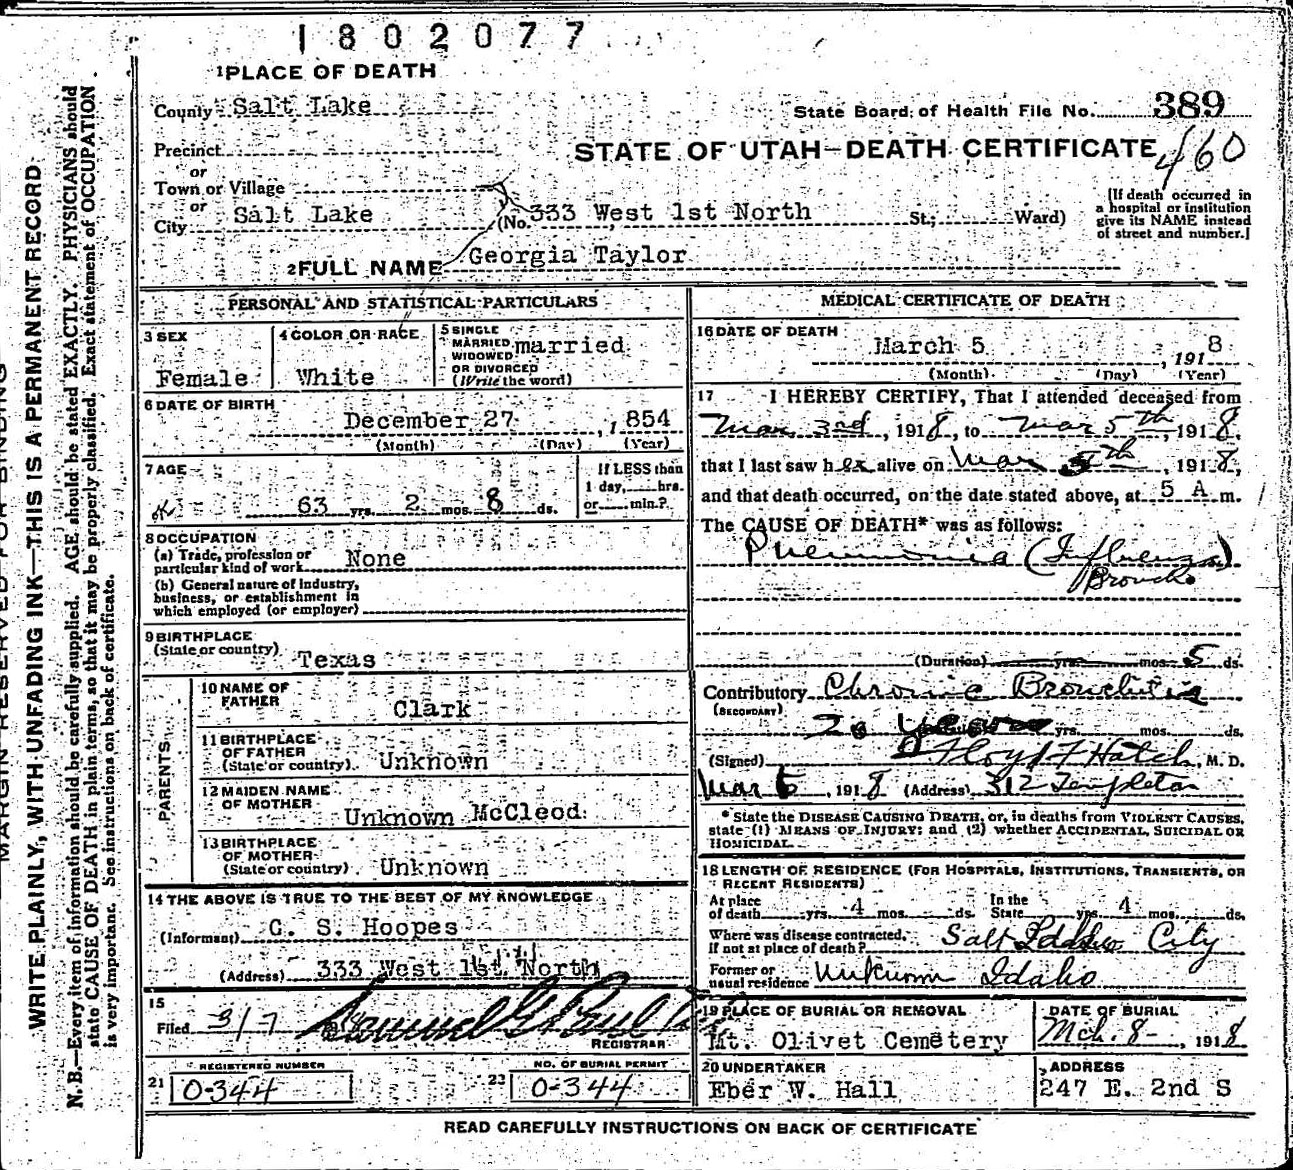 1802077
1 PLACE OF DEATH
County Salt Lake
State Board of Health File No. 389
Precinct
STATE OF UTAH—DEATH CERTIFICATE 460
or
Town or Village
or
City Salt Lake
(No. 333 West 1st North St.; Ward)
[If death occurred in
a hospital or institution
give its NAME instead
of street and number.]
2 FULL NAME Georgia Taylor
PERSONAL AND STATISTICAL PARTICULARS
3 SEX
Female
4 COLOR OR RACE
White
5 SINGLE
MARRIED
WIDOWED
OR DIVORCED
(Write the word)
married
6 DATE OF BIRTH
December 27, 1854
(Month) (Day) (Year)
7 AGE
63 yrs. 2 mos. 8 ds.
If LESS than
1 day, hrs.
or min.?
8 OCCUPATION
(a) Trade, profession or
particular kind of work None
(b) General nature of industry,
business, or establishment in
which employed (or employer)
9 BIRTHPLACE
(State or country) Texas
PARENTS
10 NAME OF
FATHER Clark
11 BIRTHPLACE
OF FATHER
(State or country) Unknown
12 MAIDEN NAME
OF MOTHER Unknown McCleod
13 BIRTHPLACE
OF MOTHER
(State or country) Unknown
14 THE ABOVE IS TRUE TO THE BEST OF MY KNOWLEDGE
(Informant) C. S. Hoopes
(Address) 333 West 1st North
15
Filed 3/7 191
REGISTRAR
REGISTERED NUMBER
21 0-344
NO. OF BURIAL PERMIT
22 0-344
MEDICAL CERTIFICATE OF DEATH
16 DATE OF DEATH
March 5, 1918
(Month) (Day) (Year)
17 I HEREBY CERTIFY, That I attended deceased from
Mar 3rd, 1918, to Mar 5th, 1918,
that I last saw her alive on Mar 5th, 1918,
and that death occurred, on the date stated above, at 5 A m.
The CAUSE OF DEATH* was as follows:
Pneumonia (Influenza)
Broncho
(Duration) yrs. mos. 5 ds.
Contributory Chronic Bronchitis
(SECONDARY)
20 years yrs. mos. ds.
(Signed) Floyd F Hatch, M. D.
Mar 6, 1918 (Address) 312 Templeton
* State the DISEASE CAUSING DEATH, or, in deaths from VIOLENT CAUSES,
state (1) MEANS OF INJURY; and (2) whether ACCIDENTAL, SUICIDAL OR
HOMICIDAL.
18 LENGTH OF RESIDENCE (FOR HOSPITALS, INSTITUTIONS, TRANSIENTS, OR
RECENT RESIDENTS)
At place
of death yrs. 4 mos. ds.
In the
State yrs. 4 mos. ds.
Where was disease contracted,
if not at place of death? Salt City
Former or
usual residence Unknown Idaho
19 PLACE OF BURIAL OR REMOVAL
Mt. Olivet Cemetery
DATE OF BURIAL
Mch. 8-, 1918
20 UNDERTAKER
Eber W. Hall
ADDRESS
247 E. 2nd S
READ CAREFULLY INSTRUCTIONS ON BACK OF CERTIFICATE
MARGIN RESERVED FOR BINDING
WRITE PLAINLY, WITH UNFADING INK—THIS IS A PERMANENT RECORD
N. B.—Every item of information should be carefully supplied. AGE should be stated EXACTLY. PHYSICIANS should
state CAUSE OF DEATH in plain terms, so that it may be properly classified. Exact statement of OCCUPATION
is very important. See instructions on back of certificate.